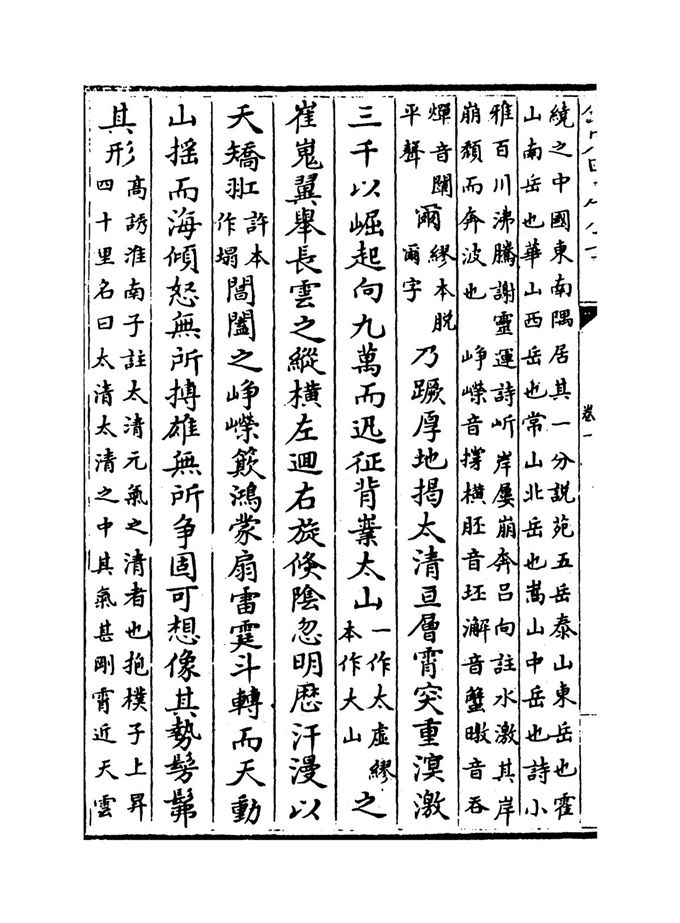 繞之中國東南隅居其一分説苑五岳泰山東岳也霍
山南岳也華山西岳也常山北岳也嵩山中岳也詩小
雅百川沸騰謝靈運詩圻岸屢崩奔吕向註水激其岸
崩頽而奔波也　崢嶸音撑橫胚音坯澥音蟹暾音吞
燀音闡爾繆本脱
平聲　爾字
乃蹶厚地揭太清亘層霄突重溟激
三千以崛起向九萬而迅征背嶪太山一作太虛繆
本作大山之
崔嵬翼舉長雲之縱橫左迴右旋倏陰忽明歷汗漫以
天矯羾許本
作塌閶闔之崢嶸簸鴻蒙扇雷霆斗轉而天動
山揺而海傾怒無所搏雄無所爭固可想像其勢髣髴
其形高誘淮南子註太清元氣之清者也抱樸子上昇
四十里名曰太清太清之中其氣甚剛霄近天雲
卷一